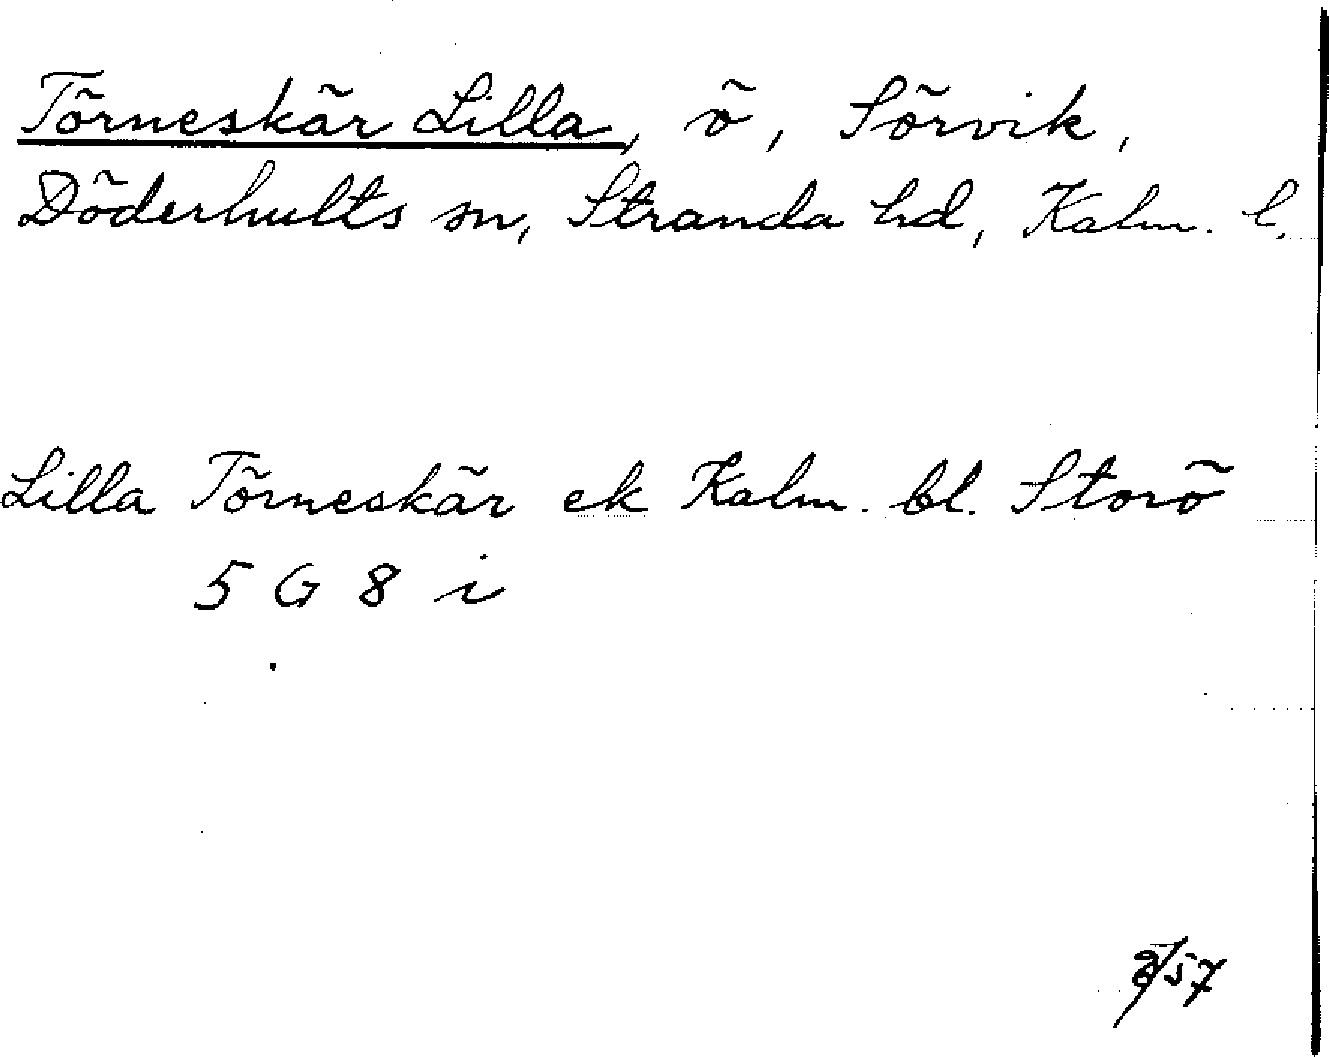 Törneskär Lilla, ö, Sörvik,
Döderhults sn, Stranda hd, Kalm. l.
Lilla Törneskär ek Kalm. bl. Storö
5 G 8 i
/57